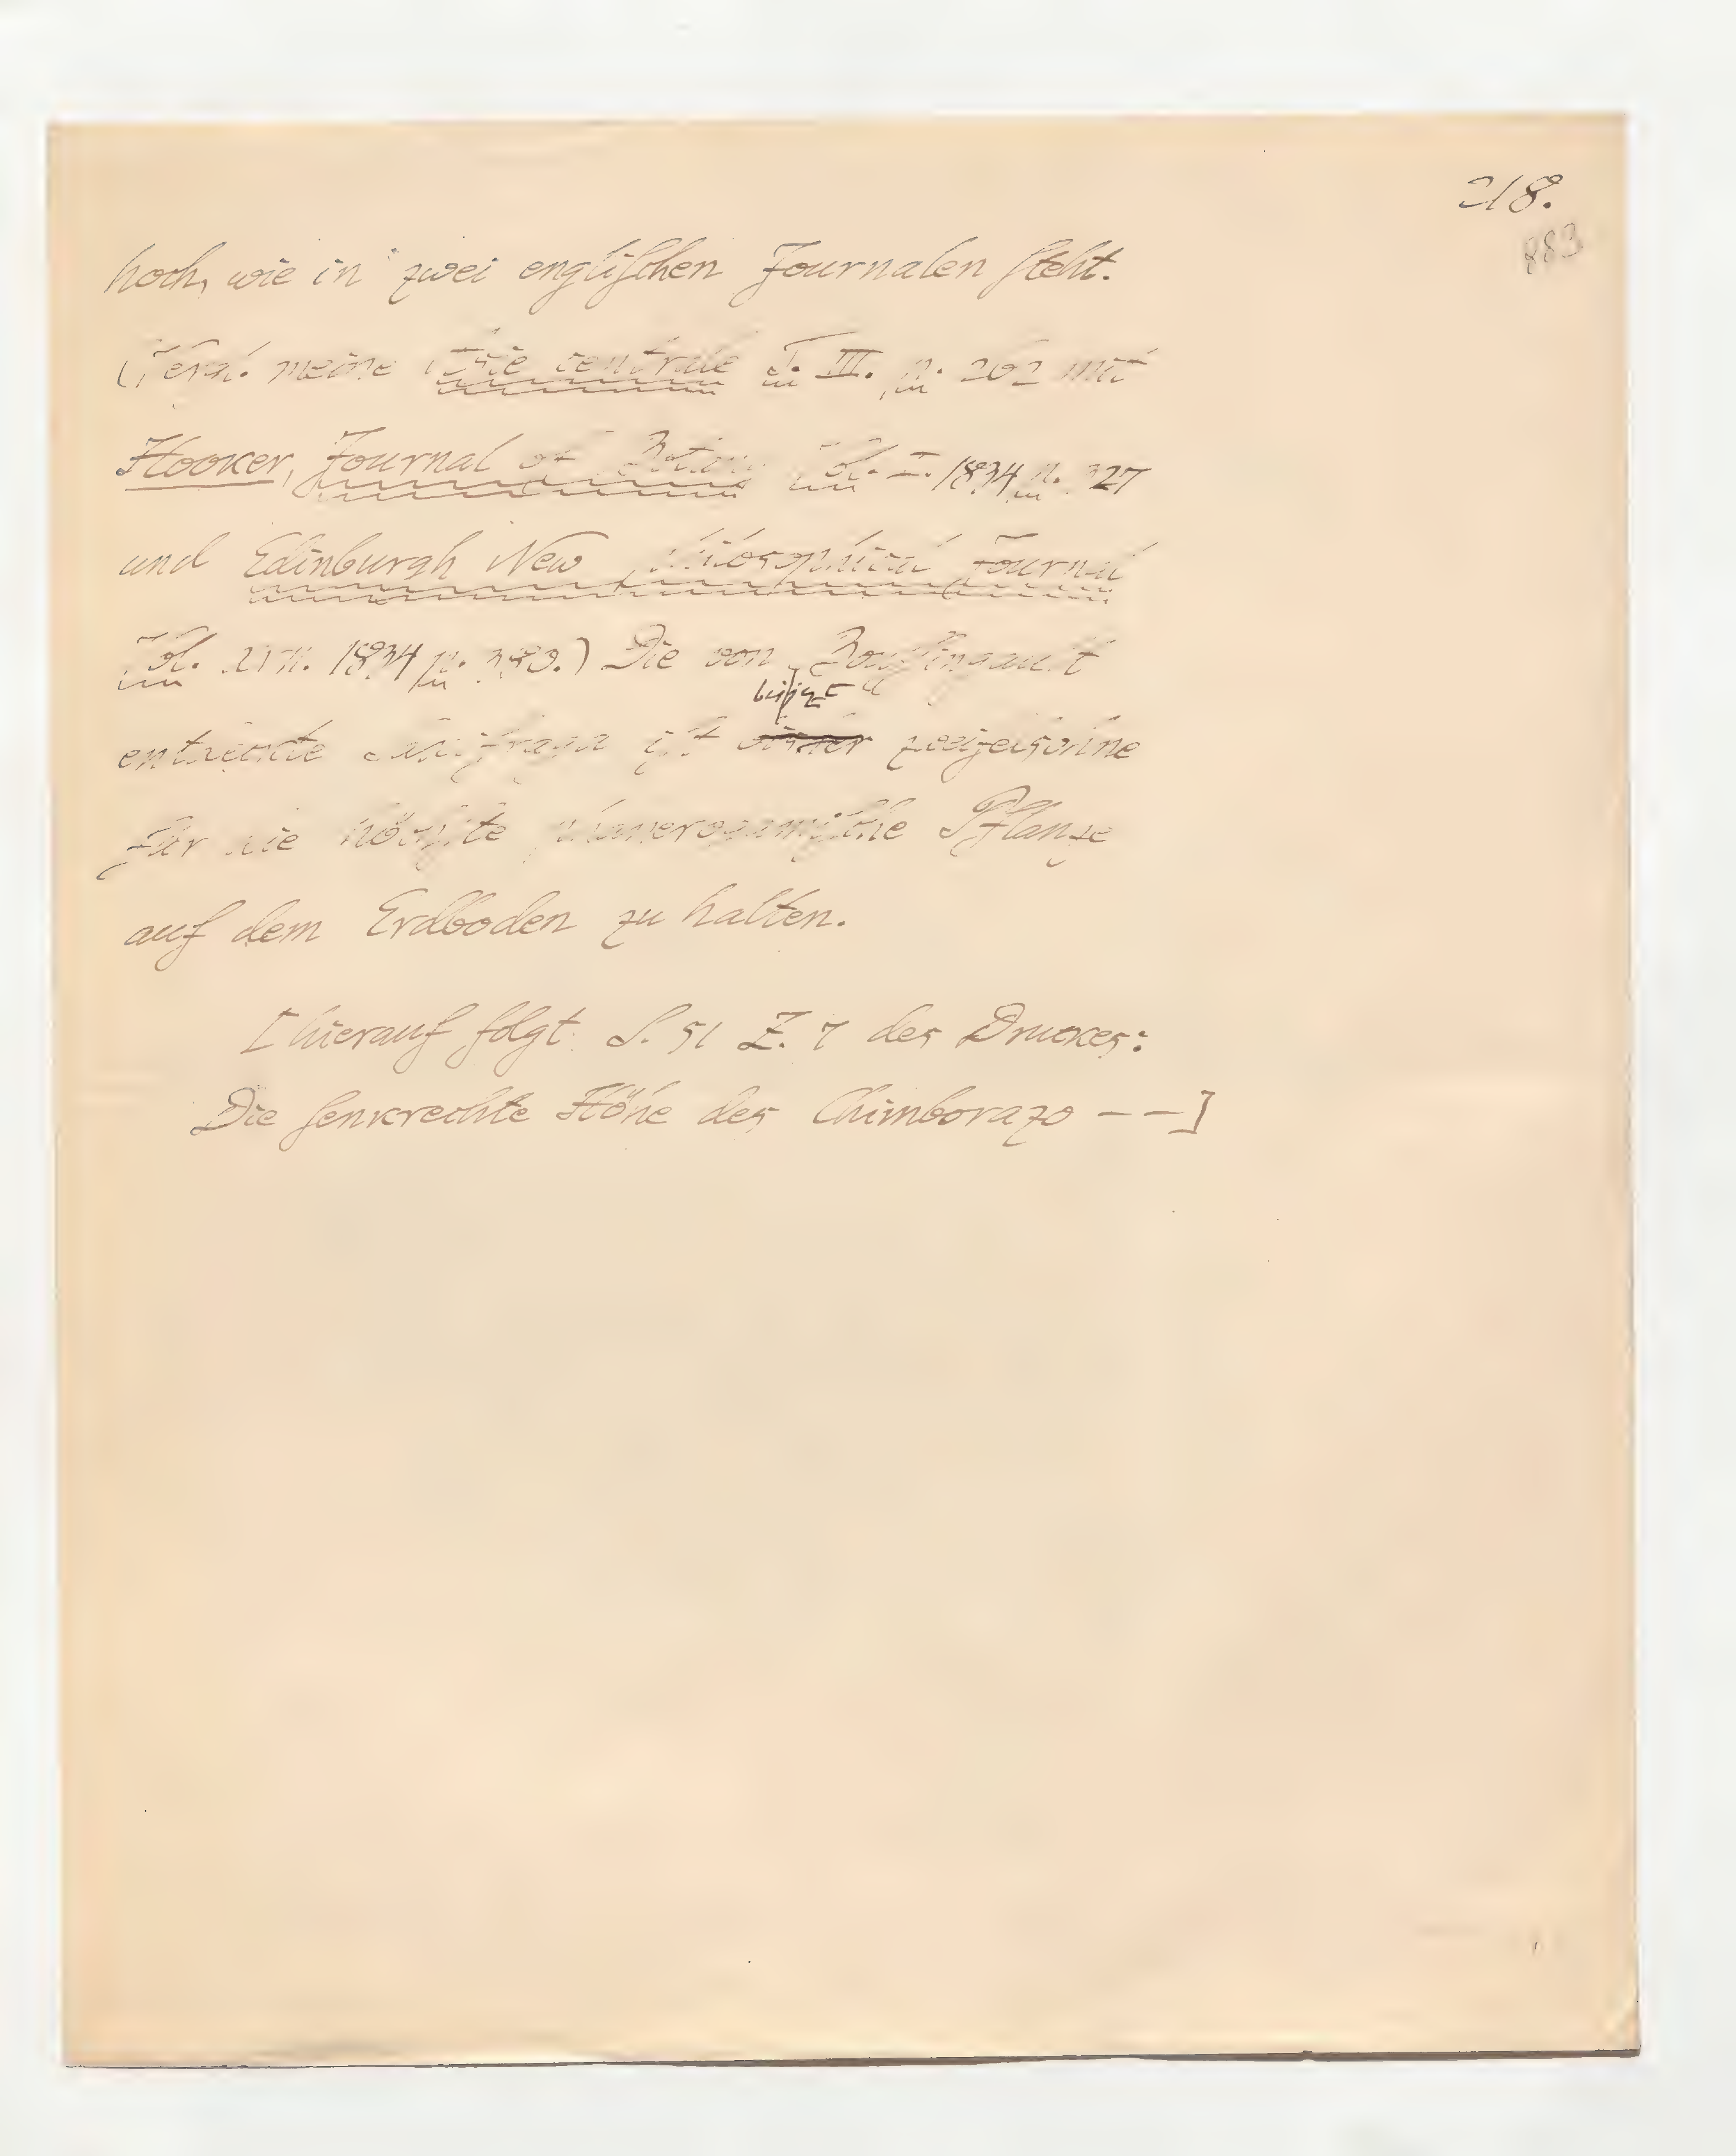 218.
883
hoch, wie in zwei engliſchen Journalen ſteht.
(Vergl. meine Asie centrale T. III. p. 262 mit
Hooker, Journal of Botany Vol. I. 1834 p. 327
und Edinburgh New Philosophical Journal
Vol. XVII. 1834 p. 380.) Die von Bouſſingault
entdeckte Saxifraga iſt zweifelsohne
für die höchſte phanerogamiſche Pflanze
auf dem Erdboden zu halten.
[hierauf folgt S. 51 Z. 7 des Druckes:
Die ſenkrechte Höhe des Chimborazo – –]